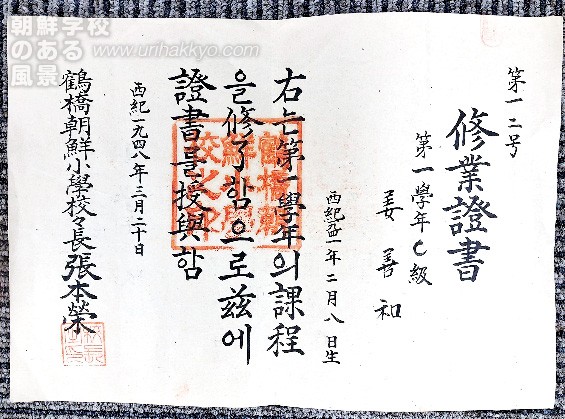 朝鮮学校
のある
風景
www.urihakkyo.com
第一二号
修業證書
第一學年C級
姜善和
西紀一年二月八日生
右는第一學年의課程
을修了함으로玆에
證書를授與함
西紀一九四八年三月二十日
鶴橋朝鮮小學校々長張本榮